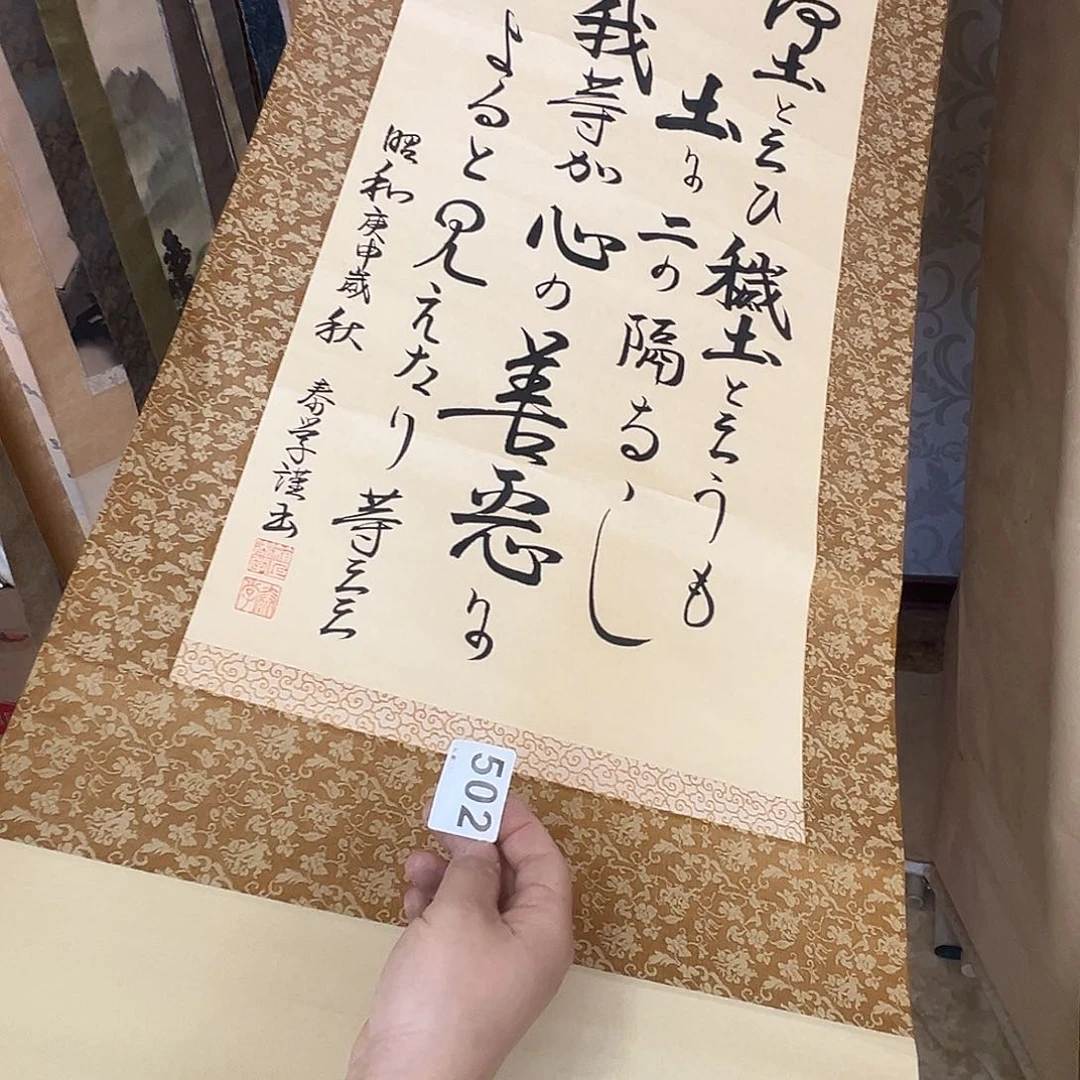 浄土といひ穢土といふも
土に二の隔なし
我等が心の善悪に
よると見えたり等云云
昭和庚申歳秋
泰学謹書
502